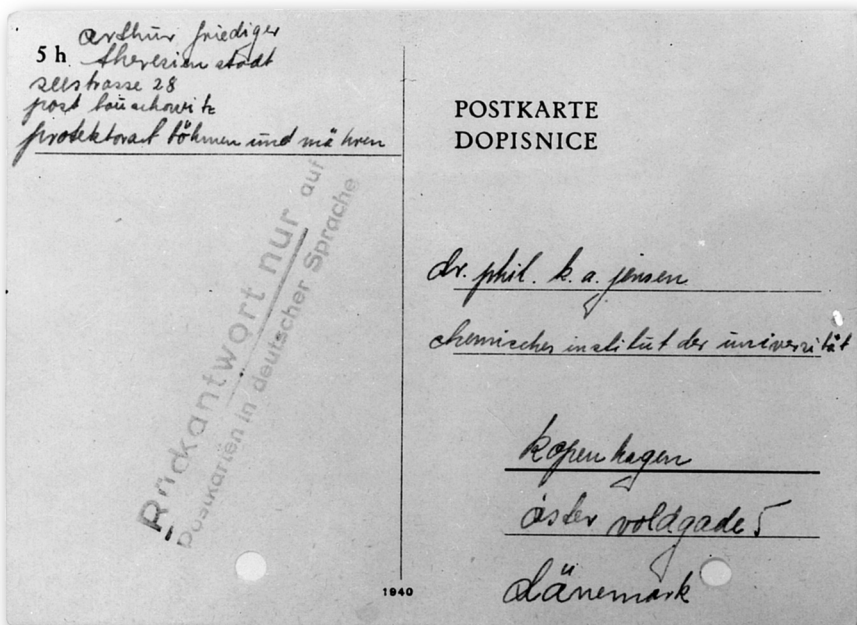 5 h
arthur friediger
theresienstadt
seestrasse 28
post bauschowitz
protektorat böhmen und mähren
Rückantwort nur auf
Postkarten in deutscher Sprache
POSTKARTE
DOPISNICE
dr. phil. k. a. jensen
chemisches institut der universität
kopenhagen
öster voldgade 5
dänemark
1940